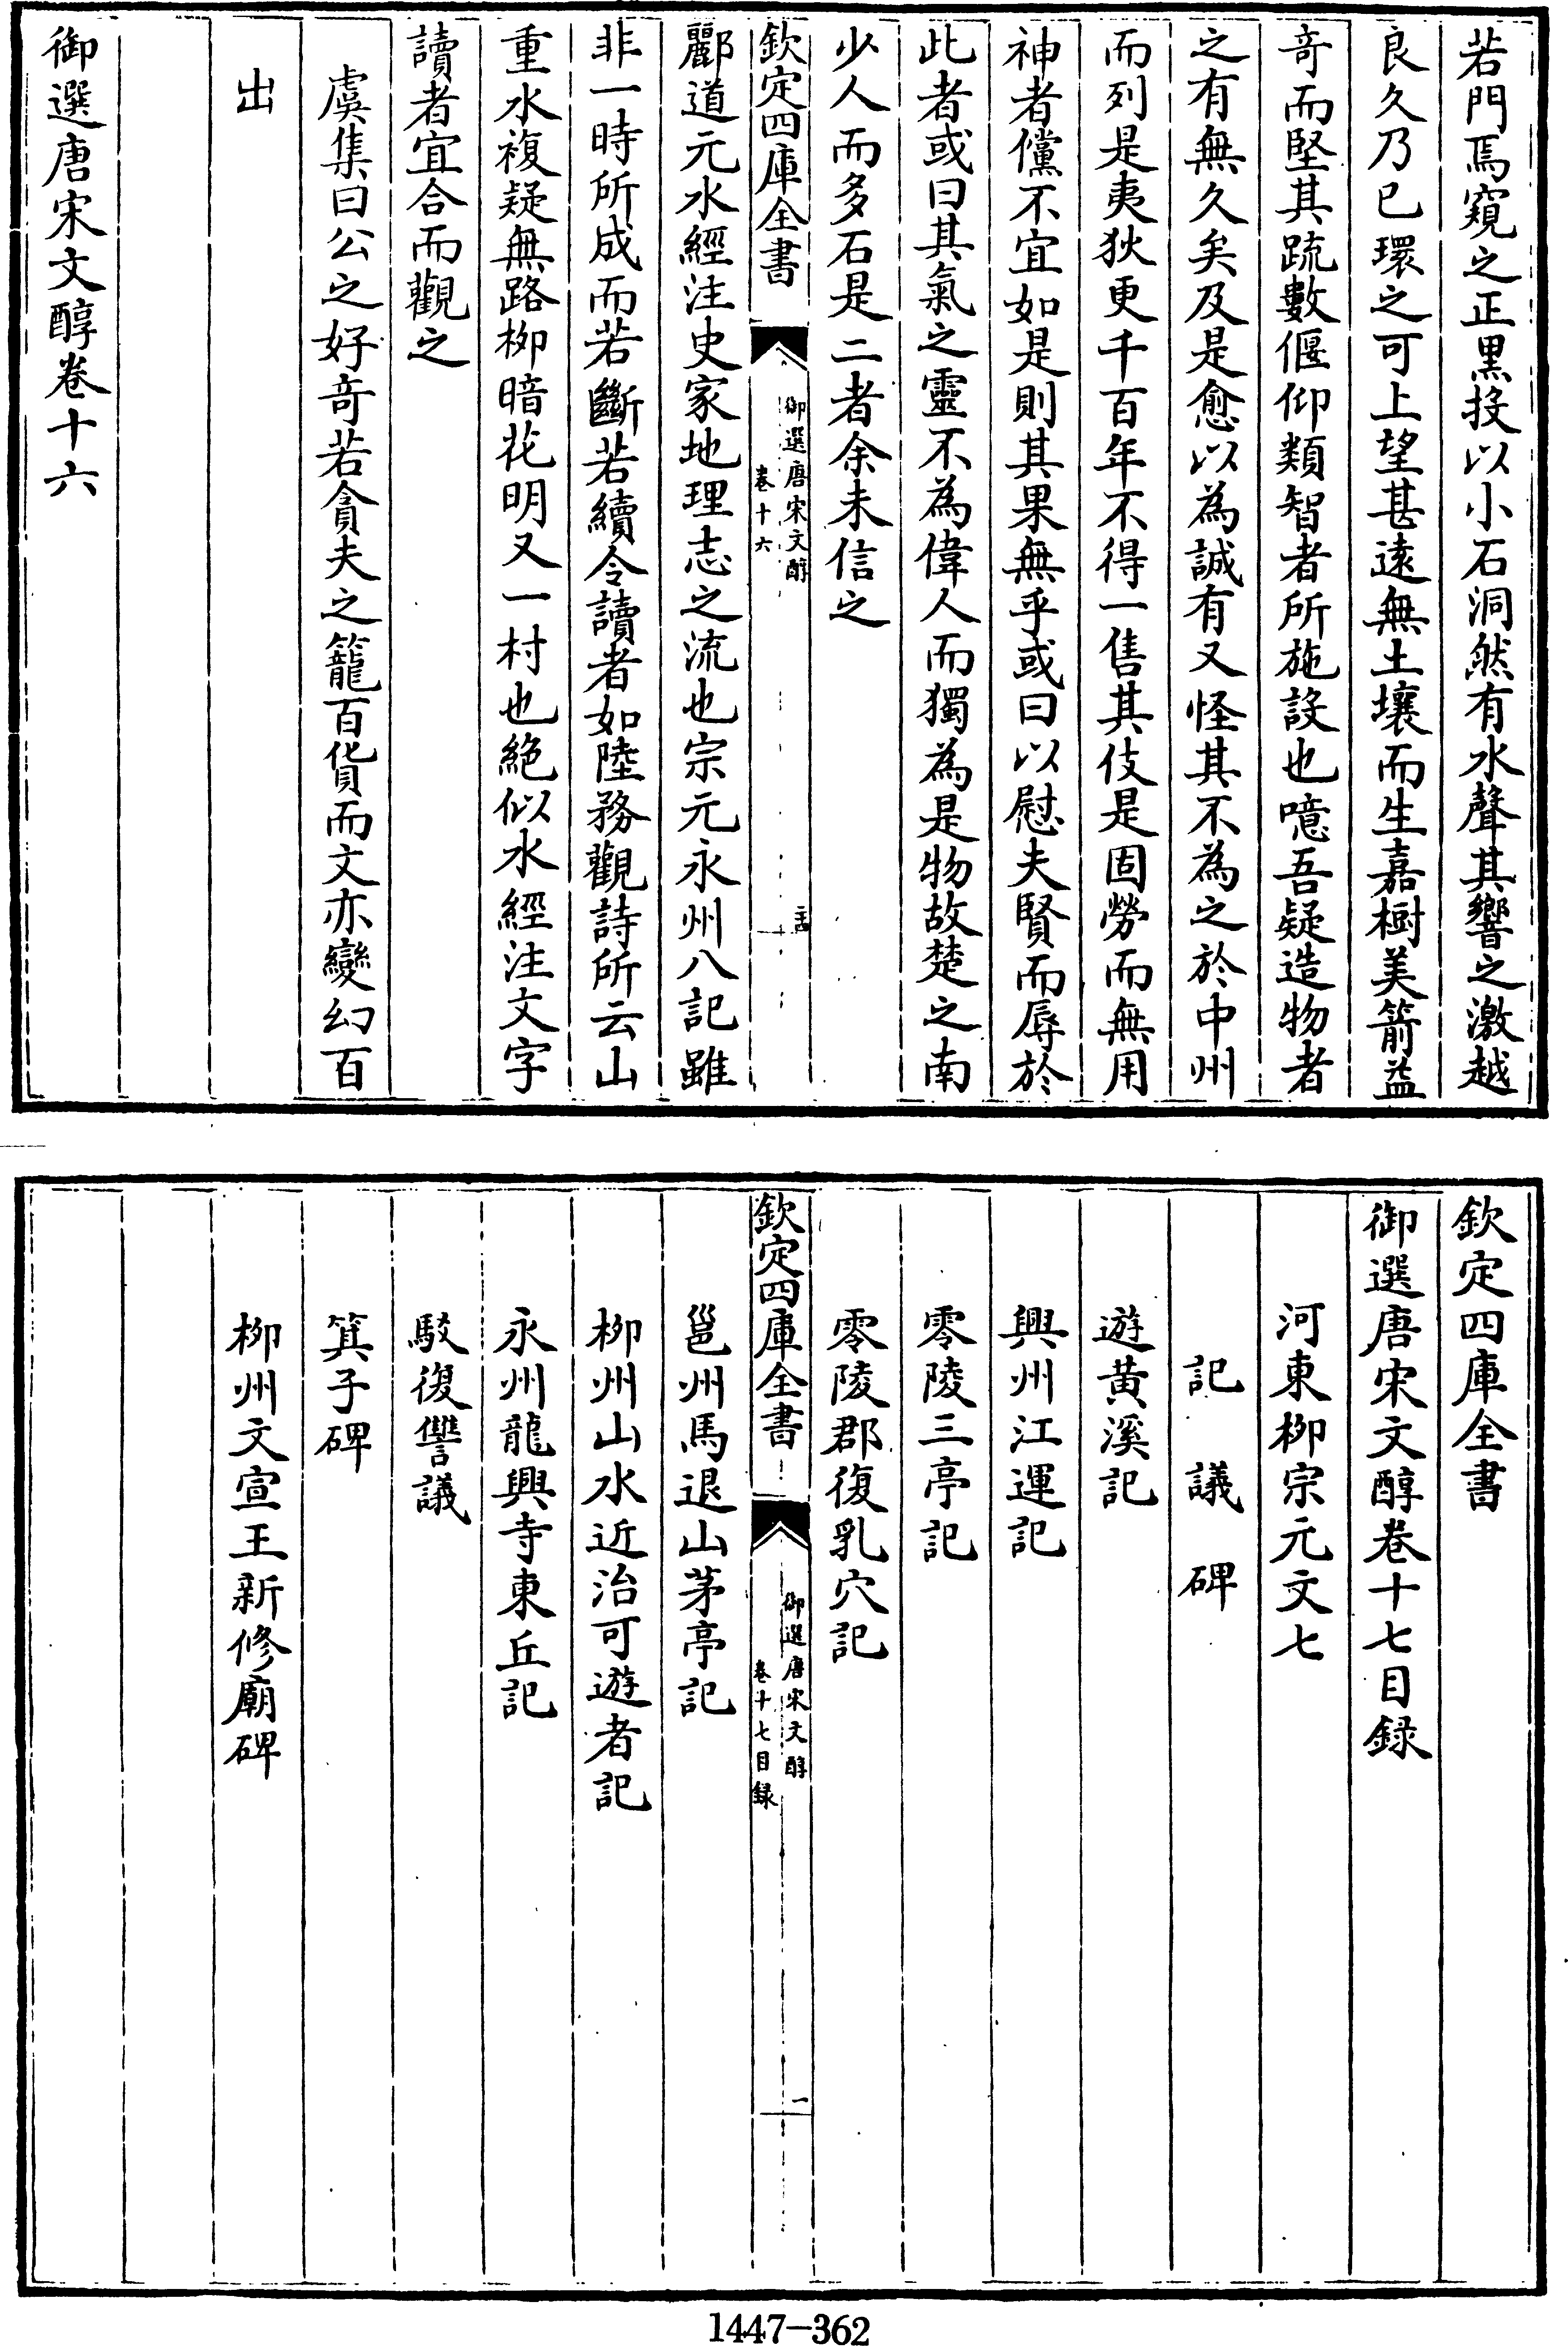 若門焉窺之正黒投以小石洞然有水聲其響之激越
良久乃已環之可上望甚遠無土壤而生嘉樹美箭益
竒而堅其疏數偃仰類智者所施設也噫吾疑造物者
之有無久矣及是愈以為誠有又怪其不為之於中州
而列是夷狄更千百年不得一售其伎是固勞而無用
神者儻不宜如是則其果無乎或曰以慰夫賢而辱於
此者或曰其氣之靈不為偉人而獨為是物故楚之南
少人而多石是二者余未信之
欽定四庫全書
御選唐宋文醇
卷十六
酈道元水經注史家地理志之流也宗元永州八記雖
非一時所成而若斷若續令讀者如陸務觀詩所云山
重水複疑無路栁暗花明又一村也絶似水經注文字
讀者宜合而觀之
虞集曰公之好竒若貪夫之籠百貨而文亦變幻百
出
御選唐宋文醇卷十六
欽定四庫全書
御選唐宋文醇卷十七目録
河東栁宗元文七
記議碑
遊黄溪記
興州江運記
零陵三亭記
零陵郡復乳穴記
欽定四庫全書
御選唐宋文醇
卷十七目録
一
邕州馬退山茅亭記
栁州山水近治可遊者記
永州龍興寺東丘記
駁復讐議
箕子碑
栁州文宣王新修廟碑
1447-362